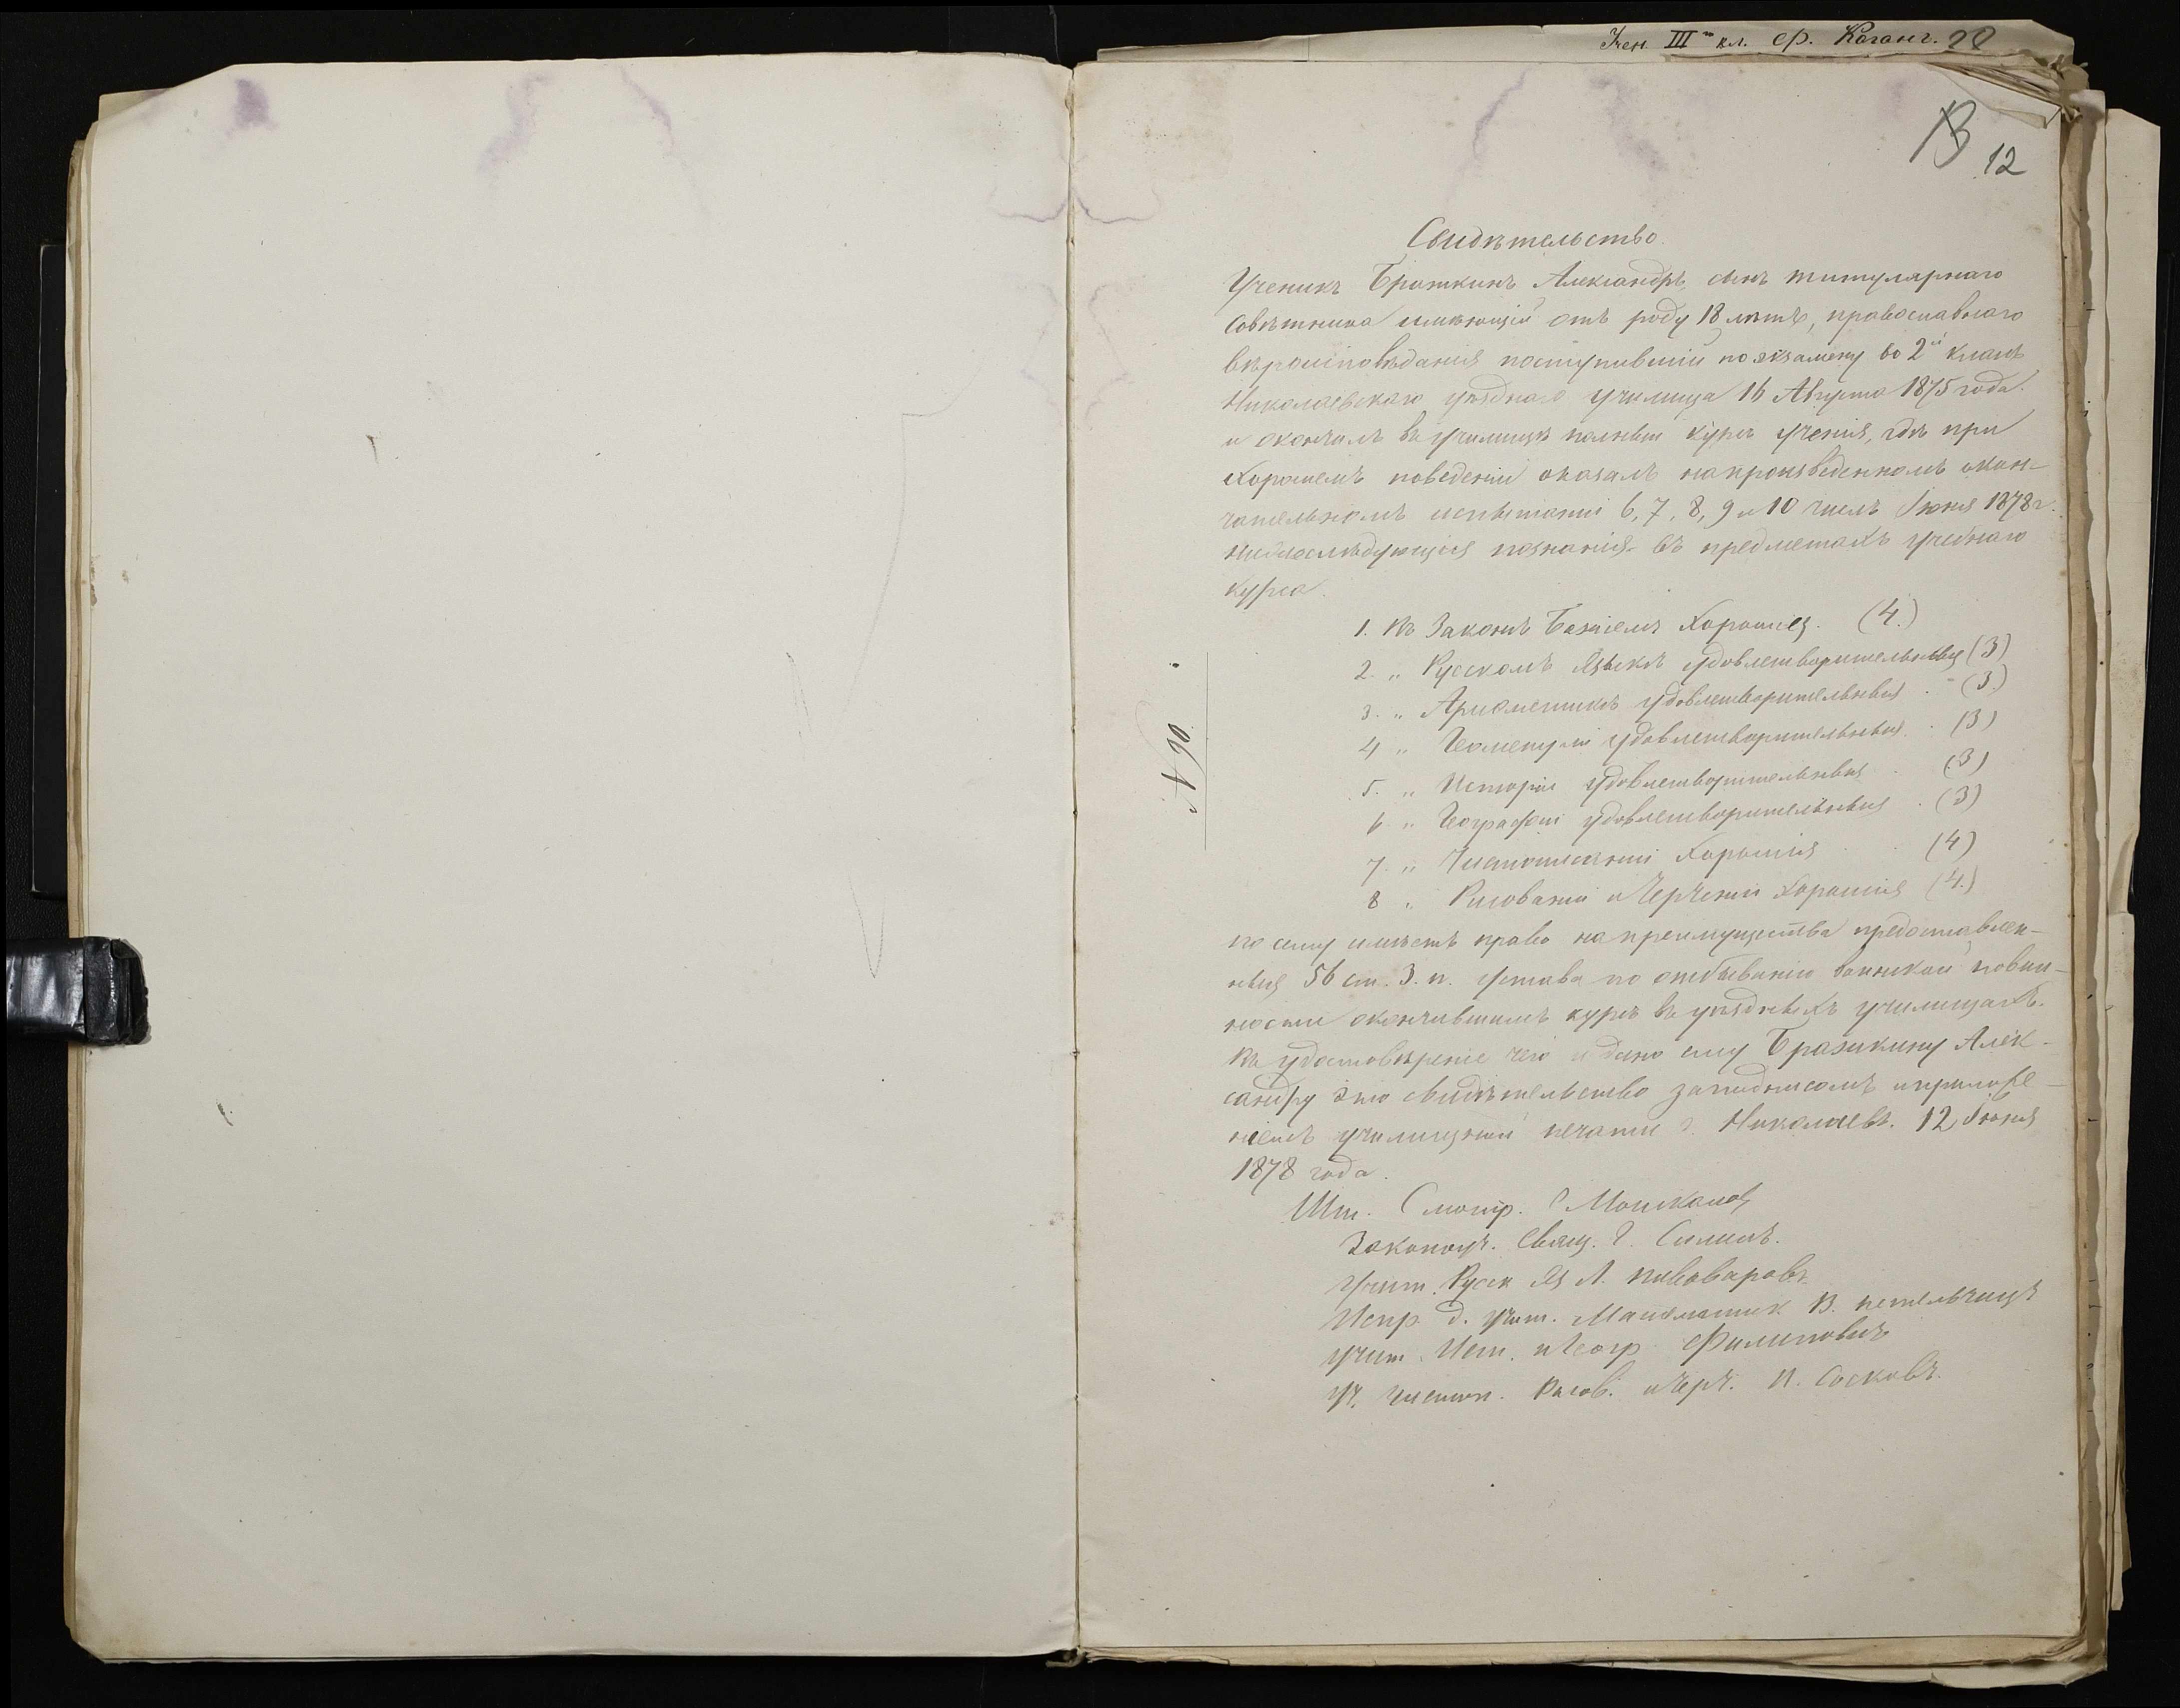 Учен. III кл. Ф. Каганъ. 28
13 12
Свидѣтельство
Ученикъ Бражкинъ Александръ, сынъ титулярнаго
Совѣтника имѣющій отъ роду 18 лѣтъ, православнаго
вѣроисповѣданія поступившій по экзамену во 2й классъ
Николаевскаго уѣзднаго училища 16 Августа 1875 года.
и окончилъ въ училищѣ полный курсъ ученія, гдѣ при
Хорошемъ поведеніи оказалъ на произведенномъ окон-
чательномъ испытаніи 6, 7, 8, 9 и 10 числъ Іюня 1878 г.
нижеслѣдующія познанія въ предметахъ учебнаго
курса.
1. Въ Законѣ Божіемъ Хорошія. (4.)
2. „ Русскомъ Языкѣ удовлетворительныя (3)
3. „ Ариѳметикѣ удовлетворительныя . (3.)
4 „ Геометріи удовлетворительныя . (3)
5. „ Исторіи удовлетворительныя . (3)
6 „ Географіи удовлетворительныя . (3)
7. „ Чистописаніи Хорошія . . (4)
8 „ Рисованіи и Черченіи Хорошія (4.)
№ 90.
по сему имѣетъ право на преимущества предоставлен-
ныя 56 ст. 3. п. устава по отбыванію воинской повин-
ности окончившимъ курсъ въ уѣздныхъ училищахъ.
Въ удостовѣреніе чего и дано ему Бражкину Алек-
сандру это свидѣтельство за подписомъ и приложе-
ніемъ училищной печати г. Николаевъ. 12 Іюня
1878 года.
Шт. Смотр.
Законоуч. Свящ. Г. Силинъ.
Учит. Русск Яз Л. Пивоваровъ.
Испр. д. учит. Математик В.
Учит. Ист. и Геогр Филиповичъ
Уч. Чистоп. Рисов. и Черч. П. Сосковъ.